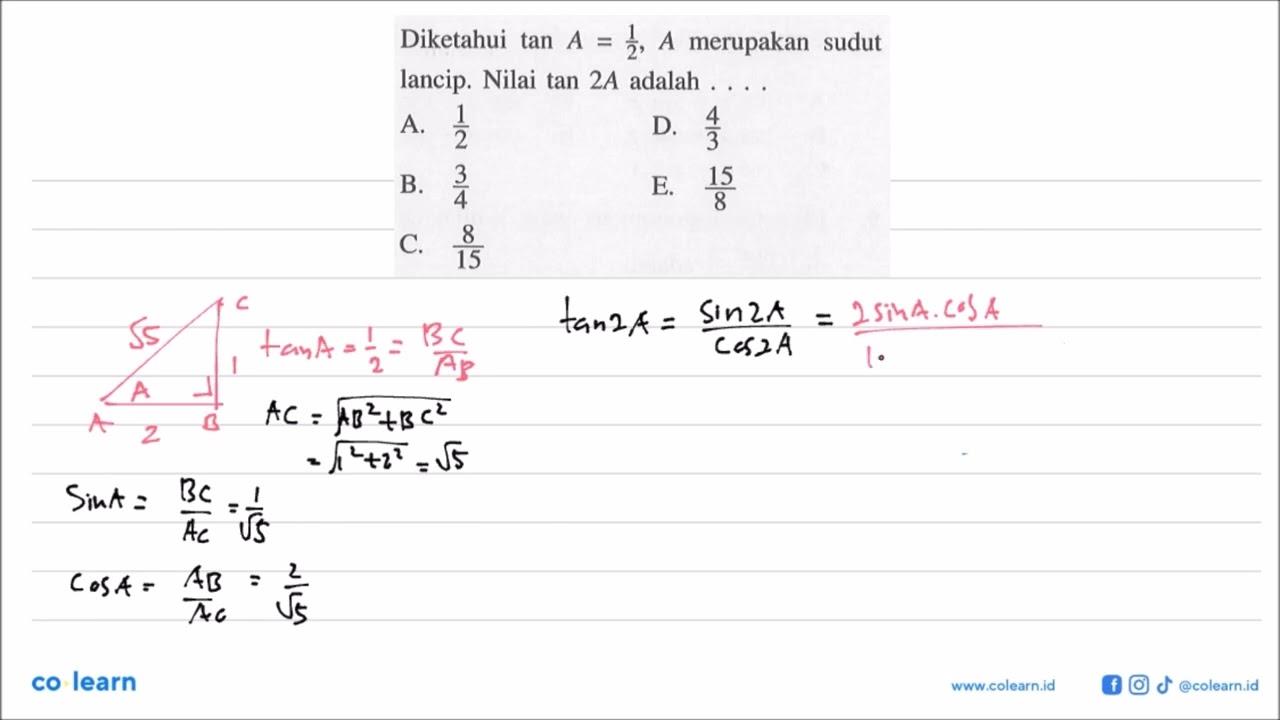 Diketahui tan A = 1/2, A merupakan sudut
lancip. Nilai tan 2A adalah . . . .
A. 1/2
D. 4/3
B. 3/4
E. 15/8
C. 8/15
C
√5
1
A
A
2
B
tan A = 1/2 = BC/AB
AC = √AB² + BC²
= √1² + 2² = √5
Sin A = BC/AC = 1/√5
Cos A = AB/AC = 2/√5
tan 2A = Sin 2A/Cos 2A = 2 sin A . cos A/1.
co learn
www.colearn.id
@colearn.id